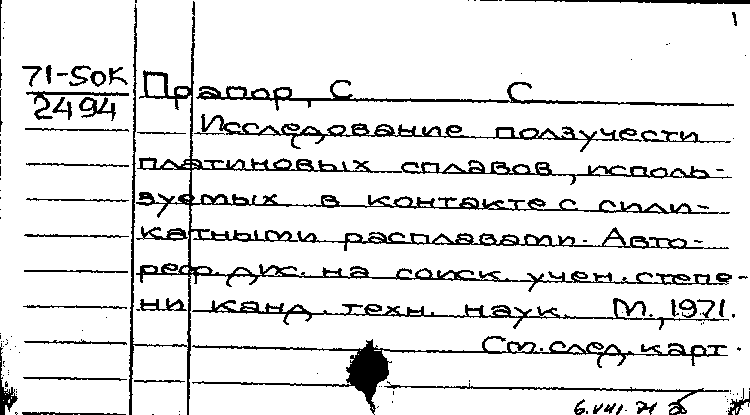 1
71-5ок
2494
Прапор, С С
Исследование ползучести
платиновых сплавов, исполь-
зуемых в контакте с сили-
катными расплавами. Авто-
реф. дис. на соиск. учен. степе-
ни канд. техн. наук. М., 1971.
См. след. карт.
6.VIII.71